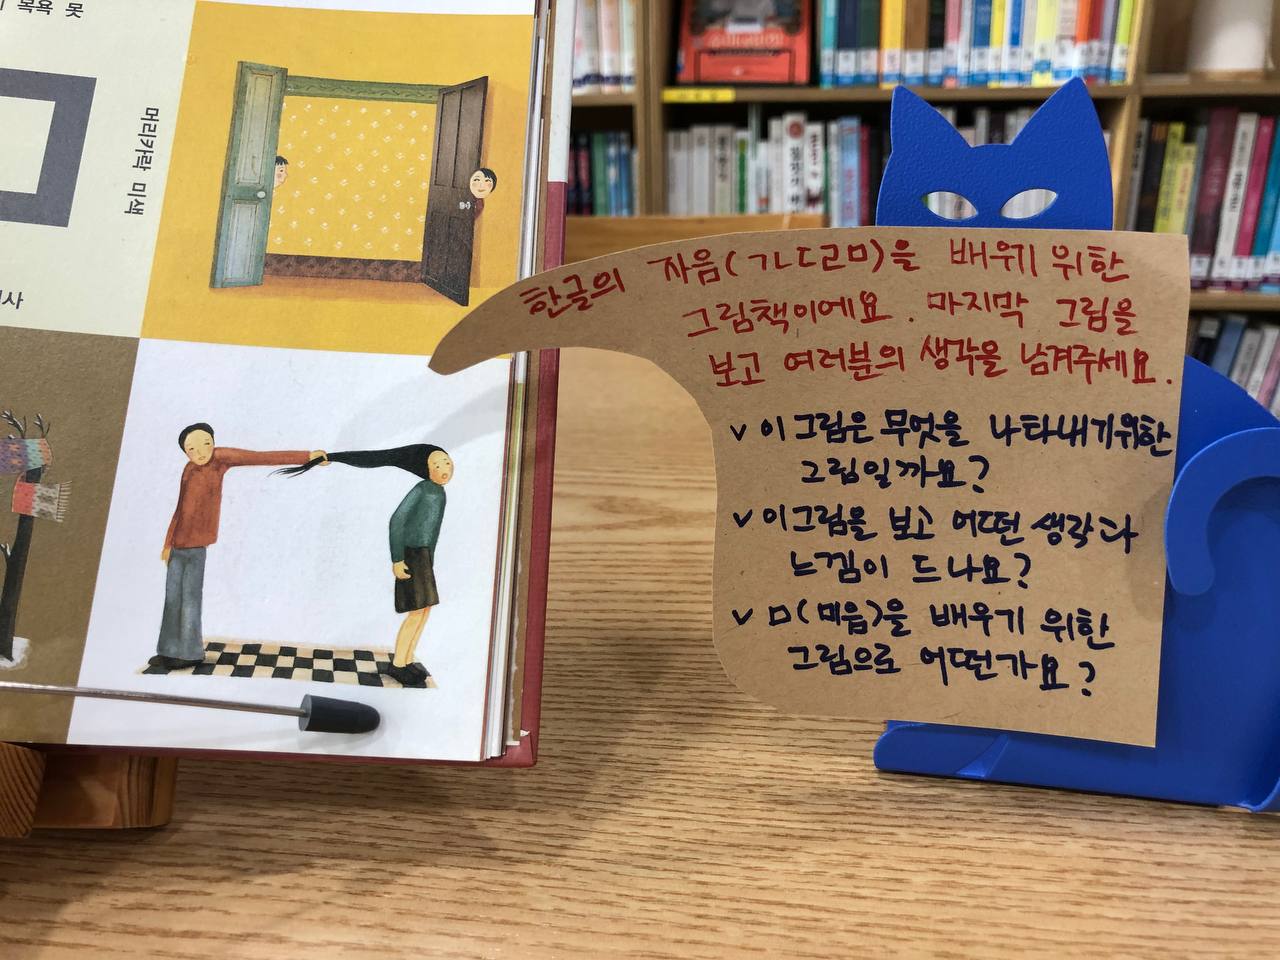 복욕 못
머리카락 미색
사
한글의 자음(ㄱㄴㄷㄹㅁ)을 배우기 위한
그림책이에요. 마지막 그림을
보고 여러분의 생각을 남겨주세요.
v 이 그림은 무엇을 나타내기위한
그림일까요?
v 이그림을 보고 어떤 생각과
느낌이 드나요?
v ㅁ(미음)을 배우기 위한
그림으로 어떤가요?